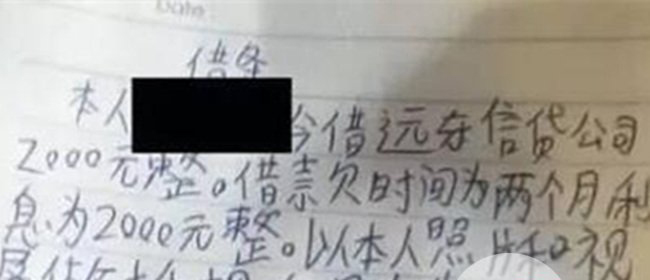 Date
借条
本人 今借远东信贷公司
2000元整。借款时间为两个月利
息为2000元整。以本人照片和视